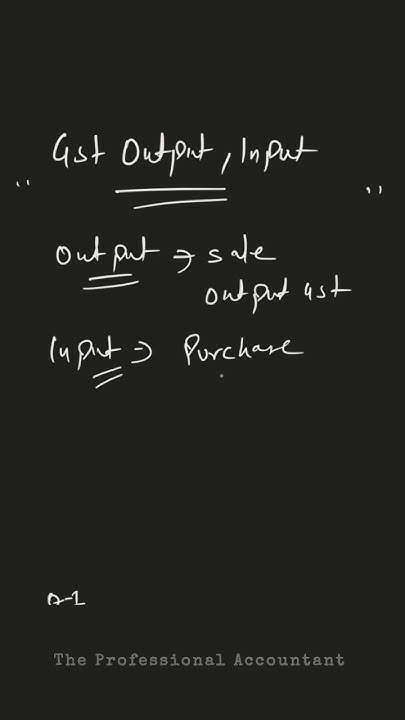 Gst Output, Input
" "
Output → sale
Output Gst
Input → Purchase
D-1
The Professional Accountant